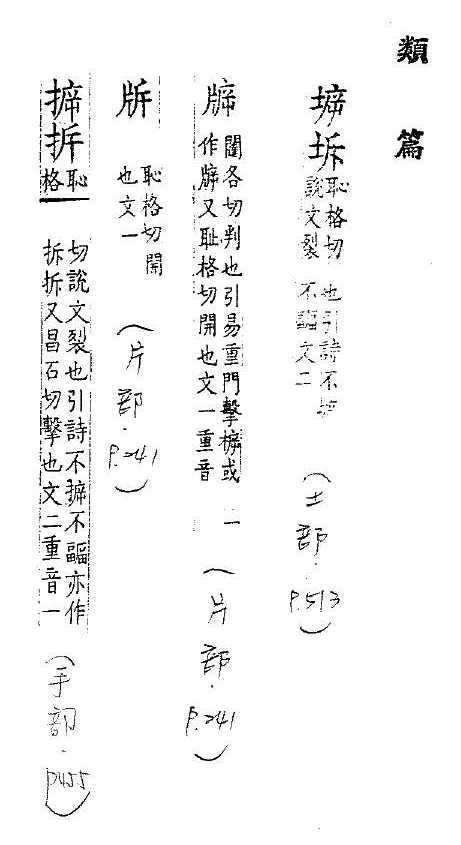 類篇
𡍩坼恥格切說文裂也引詩不𡍩不疈文二(土部.P.513)
㸁闥各切判也引易重門擊㯓或作𤗏又恥格切開也文一重音一(片部.P.241)
㸞恥格切開也文一(片部.P.241)
㨹拆恥格切說文裂也引詩不㨹不疈亦作拆拆又昌石切擊也文二重音一(手部.P455)